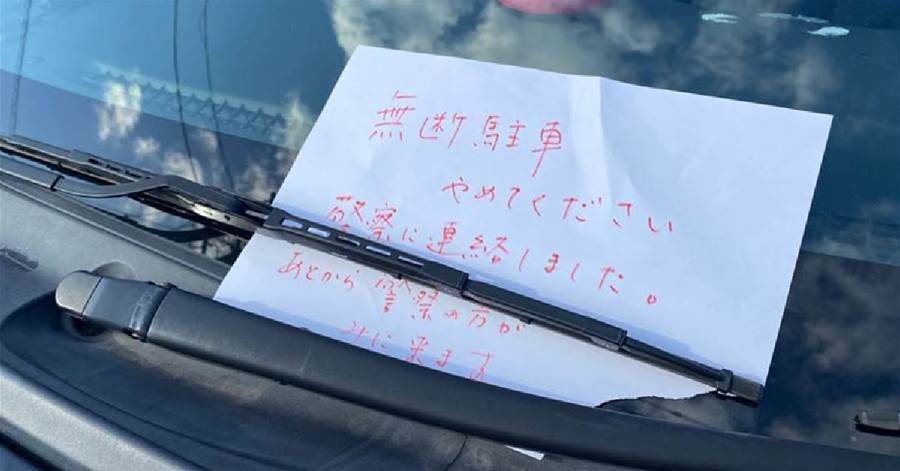 無断駐車
やめてください
警察に連絡しました。
あとから警察の方が
みに来ます